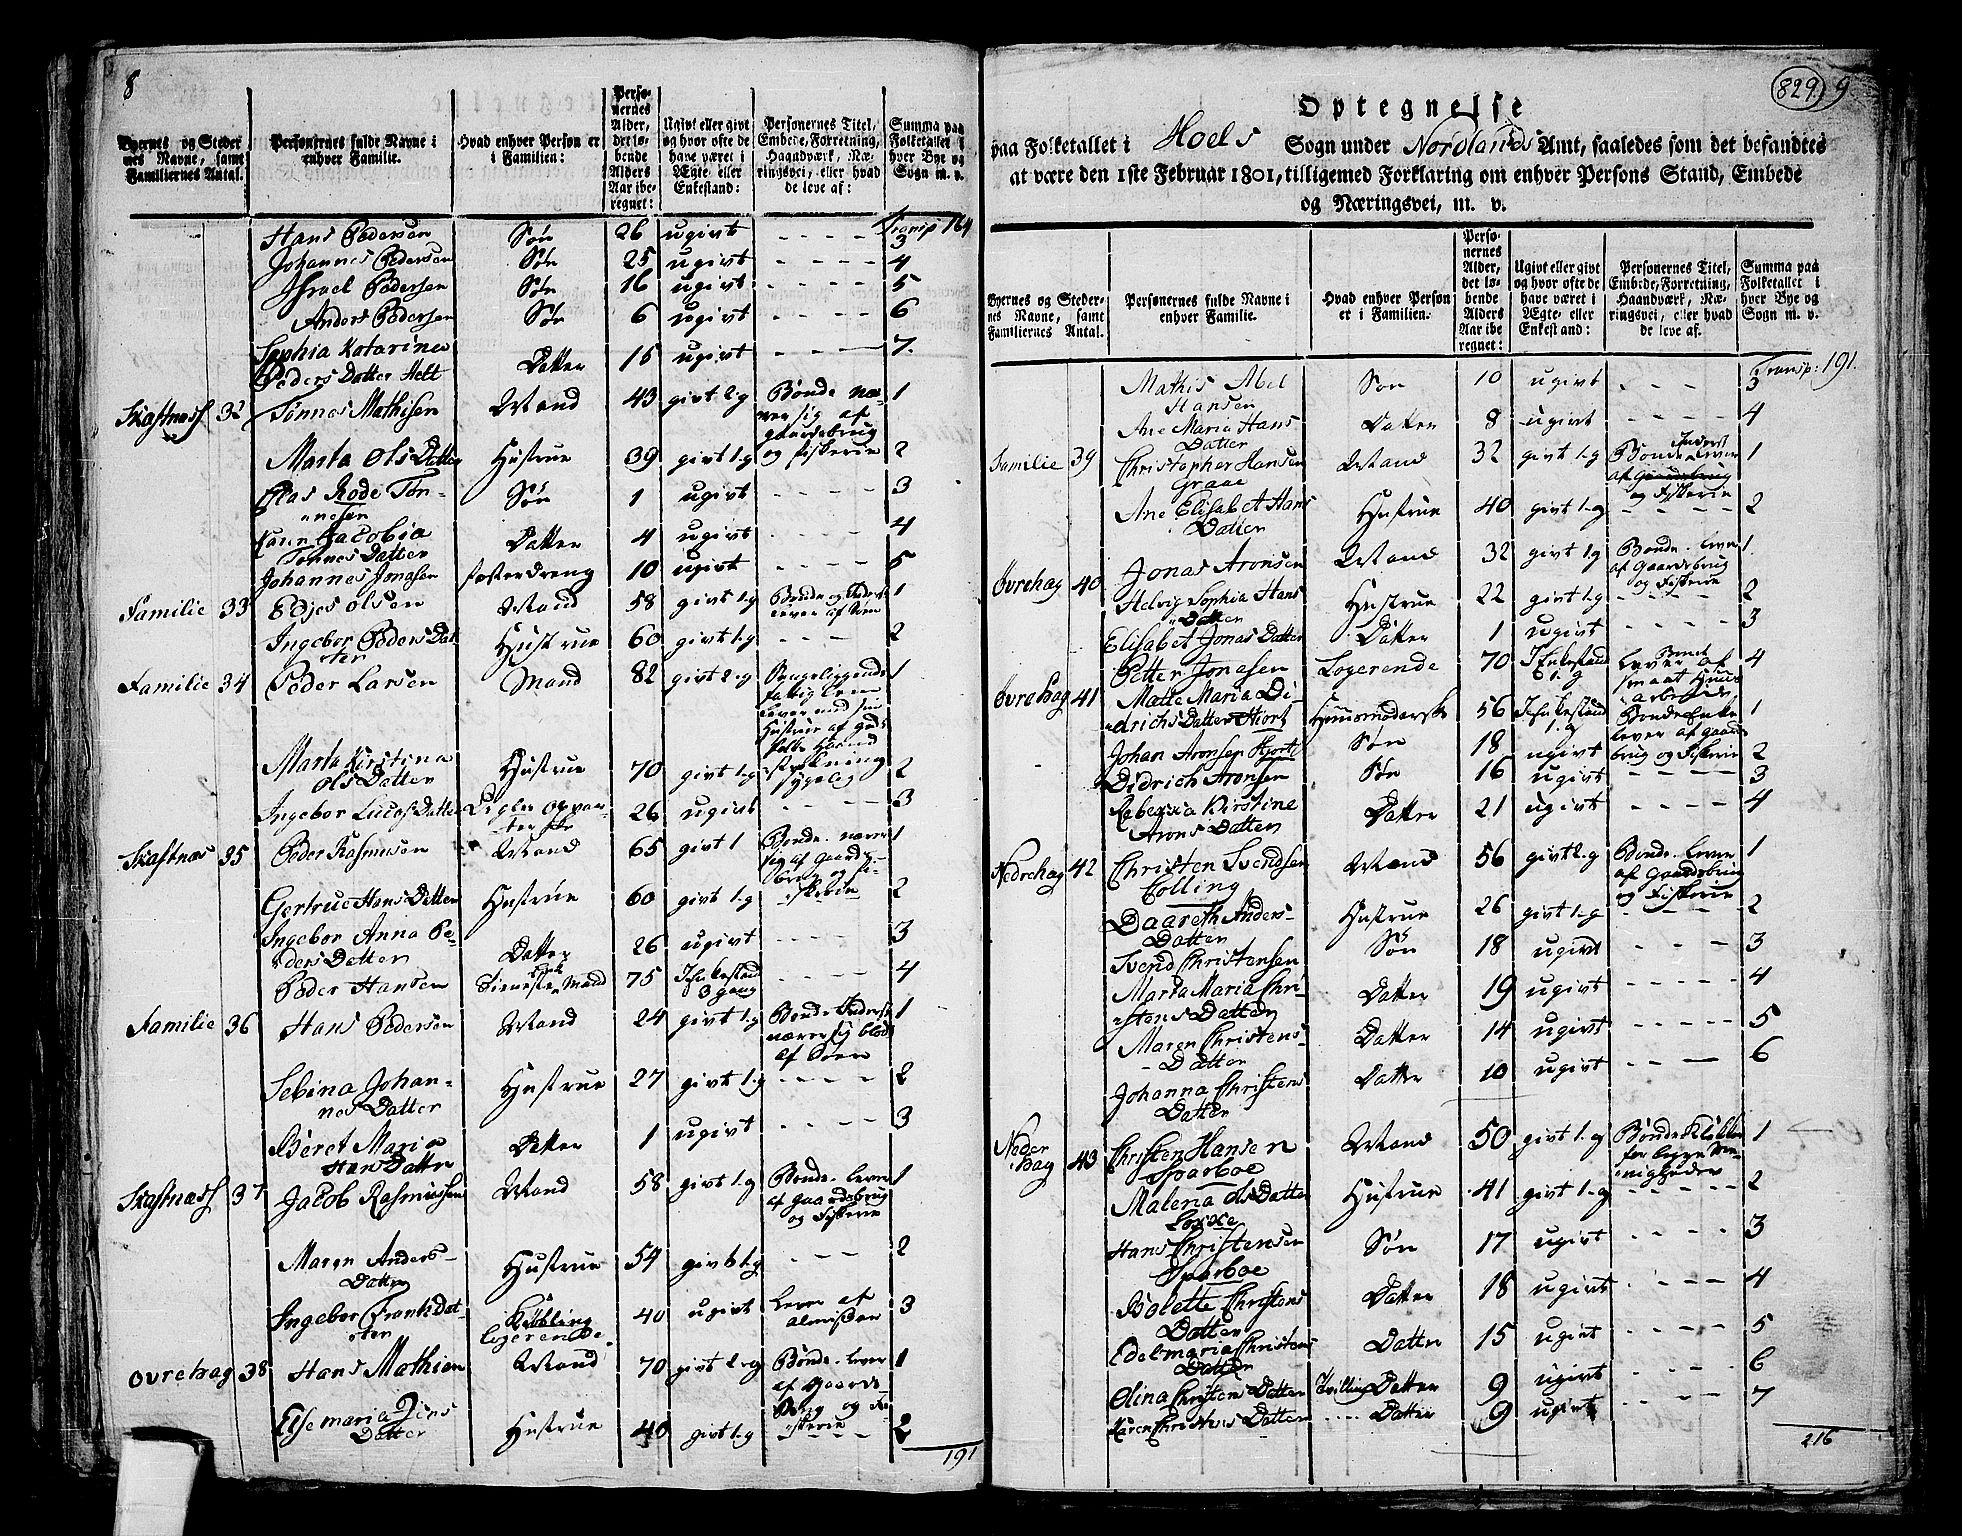 8
Byernes og Steder
nes Navne, samt
Familiernes Antal.
Personernes fulde Navne i
enhver Familie.
Hvad enhver Person er
i Familien:
Perso-
nernes
Alder,
det lø-
bende
Alders
Aar ibe
regnet:
Ugivt eller givt
og hvor ofte de
have været i
Ægte- eller
Enkestand:
Personernes Titel,
Embede, Forretning,
Haandværk, Næ-
ringsvei, eller hvad
de leve af:
Summa paa
Folketallet i
hver Bye og
Sogn m. v.
Transp 164
Hans Pedersen Søn 26 ugivt - - - - 3
Johannes Pedersen Søn 25 ugivt - - - - 4
Israel Pedersen Søn 16 ugivt - - - - 5
Anders Pedersen Søn 6 ugivt - - - - 6
Sophia Katarina
Peders Datter Helt Datter 15 ugivt - - - - 7.
Skastnæss 32 Tønnes Mathisen Mand 43 givt 2-g Bonde næ-
rer sig af
gaardsbrug
og fiskerie 1
Marta Ols Datter Hustrue 39 givt 1-g 2
Elias Rode Tøn-
nesen Søn 1 ugivt - - - - 3
Karen Jacobia
Tønnes Datter Datter 4 ugivt - - - - 4
Johannes Jonasen fosterdreng 10 ugivt - - - - 5
Familie 33 Edjes Olsen Mand 58 givt 1-g Bonde og
lever af Søen 1
Ingebor Peders Dat
ter Hustrue 60 givt 1-g - - - 2
Familie 34 Peder Larsen Mand 82 givt 2-g Sengeliggende
fattig
lever med sin
Hustrue af god
folks Haand
strekning 1
Marta Kirstina
Ols Datter Hustrue 70 givt 1-g sygelig 2
Ingebor Lucas Datter 26 ugivt - - - - 3
Skastnæs 35 Peder Rasmusen Mand 65 givt 1 Bonde nærer
sig af Gaards-
brug og fi-
skerie 1
Gertrue Hans Datter Hustrue 60 givt 1-g 2
Ingebor Anna Pe-
ders Datter Datter 26 ugivt - - - - 3
Peder Hansen Tieneste Mand 75 I Enkestand
3 gang - - - - 4
Familie 36 Hans Pedersen Mand 24 givt 1-g Bonde
nærer sig blot
af Søen 1
Sebina Johan-
nes Datter Hustrue 27 givt 1-g - - - - 2
Beret Maria
Hans Datter Datter 1 ugivt - - - - 3
Skastnæss 37 Jacob Rasmussen Mand 58 givt 1-g Bonde lever
af Gaardsbrug
og Fiskerie 1
Maren Anders-
Datter Hustrue 54 givt 1-g - - - 2
Ingebor Frank Dat-
ter
logerende 40 ugivt Lever af
almissen 3
Ovrehag 38 Hans Mathisen Mand 70 givt 2-g Bonde lever
af Gaards-
brug og Fi-
skerie 1
Else maria Jens
Datter Hustrue 40 givt 1-g 2
191
829 9
Optegnelse
paa Folketallet i Hoels Sogn under Nordlands Amt, saaledes som det befandtes
at være den 1ste Februar 1801, tilligemed Forklaring om enhver Persons Stand, Embede
og Næringsvei, m. v.
Byernes og Steder-
nes Navne, samt
Familiernes Antal.
Personernes fulde Navne i
enhver Familie.
Hvad enhver Person
er i Familien.
Perso-
nernes
Alder,
det lø-
bende
Alders
Aar ibe
regnet:
Ugivt eller givt
og hvor ofte de
have været i
Ægte- eller
Enkestand:
Personernes Titel,
Embede, Forretning,
Haandværk, Næ-
ringsvei, eller hvad
de leve af.
Summa paa
Folketallet i
hver Bye og
Sogn m. v.
Transp: 191.
Mathis Abel
Hansen Søn 10 ugivt - - - - 3
Ane Maria Hans
Datter Datter 8 ugivt - - - - 4
Familie 39 Christopher Hansen
Graae Mand 32 givt 1-g Inderst
Bonde lever
af Gaardsbrug
og Fiskerie 1
Ane Elisabet Hans
Datter Hustrue 40 givt 1-g - - - - 2
Øvrehag 40 Jonas Aronsen Mand 32 givt 1-g Bonde. lever
af Gaardsbrug
og Fiskerie 1.
Helvig Sophia Hans
Datter Hustrue 22 givt 1-g - - - - 2
Elisabet Jonas Datter Datter 1 ugivt - - - - 3
Petter Jonasen Logerende 70 I Enkestand
1. g lever af
smaat
arbeide. 4
Øvrehag 41 Mætte Maria Di
drichs Datter Hiort Huusmoderske 56 I Enkestand
1. g Bonde Enke
lever af gaards
brug og Fiskerie 1
Johan Aronsen Hjort Søn 18 ugivt 2
Didrich Aronsen Søn 16 ugivt - - - - 3
Rebecka Kirstine
Arons Datter Datter 21 ugivt - - - - 4
Nedrehag 42 Christen Svendsen
Colling Mand 56 givt 2-g Bonde. lever
af Gaardsbrug
og Fiskerie 1
Daareth Anders-
Datter Hustrue 26 givt 1-g - - - - 2
Svend Christensen Søn 18 ugivt - - - - 3
Marta Maria Chri-
stens Datter Datter 19 ugivt - - - - 4
Maren Christens-
Datter Datter 14 ugivt - - - - 5
Johanna Christens
Datter Datter 10 ugivt - - - - 6
Neder
hag 43 Christen Hansen
Sparboe Mand 50 givt 1-g Bonde Klokker
for
nigheder 1
Malena Ols Datter
Loxxe Hustrue 41 givt 1-g - - - - 2
Hans Christensen
Sparboe Søn 17 ugivt - - - - 3
Bolette Christens
Datter Datter 18 ugivt - - - - 4
Edel maria Christens
Datter Datter 15 ugivt - - - - 5
Olina Christens Datter Tvilling Datter 9 ugivt - - - - 6
Karen Christens Datter - - - - Datter 9 ugivt - - - - 7
216